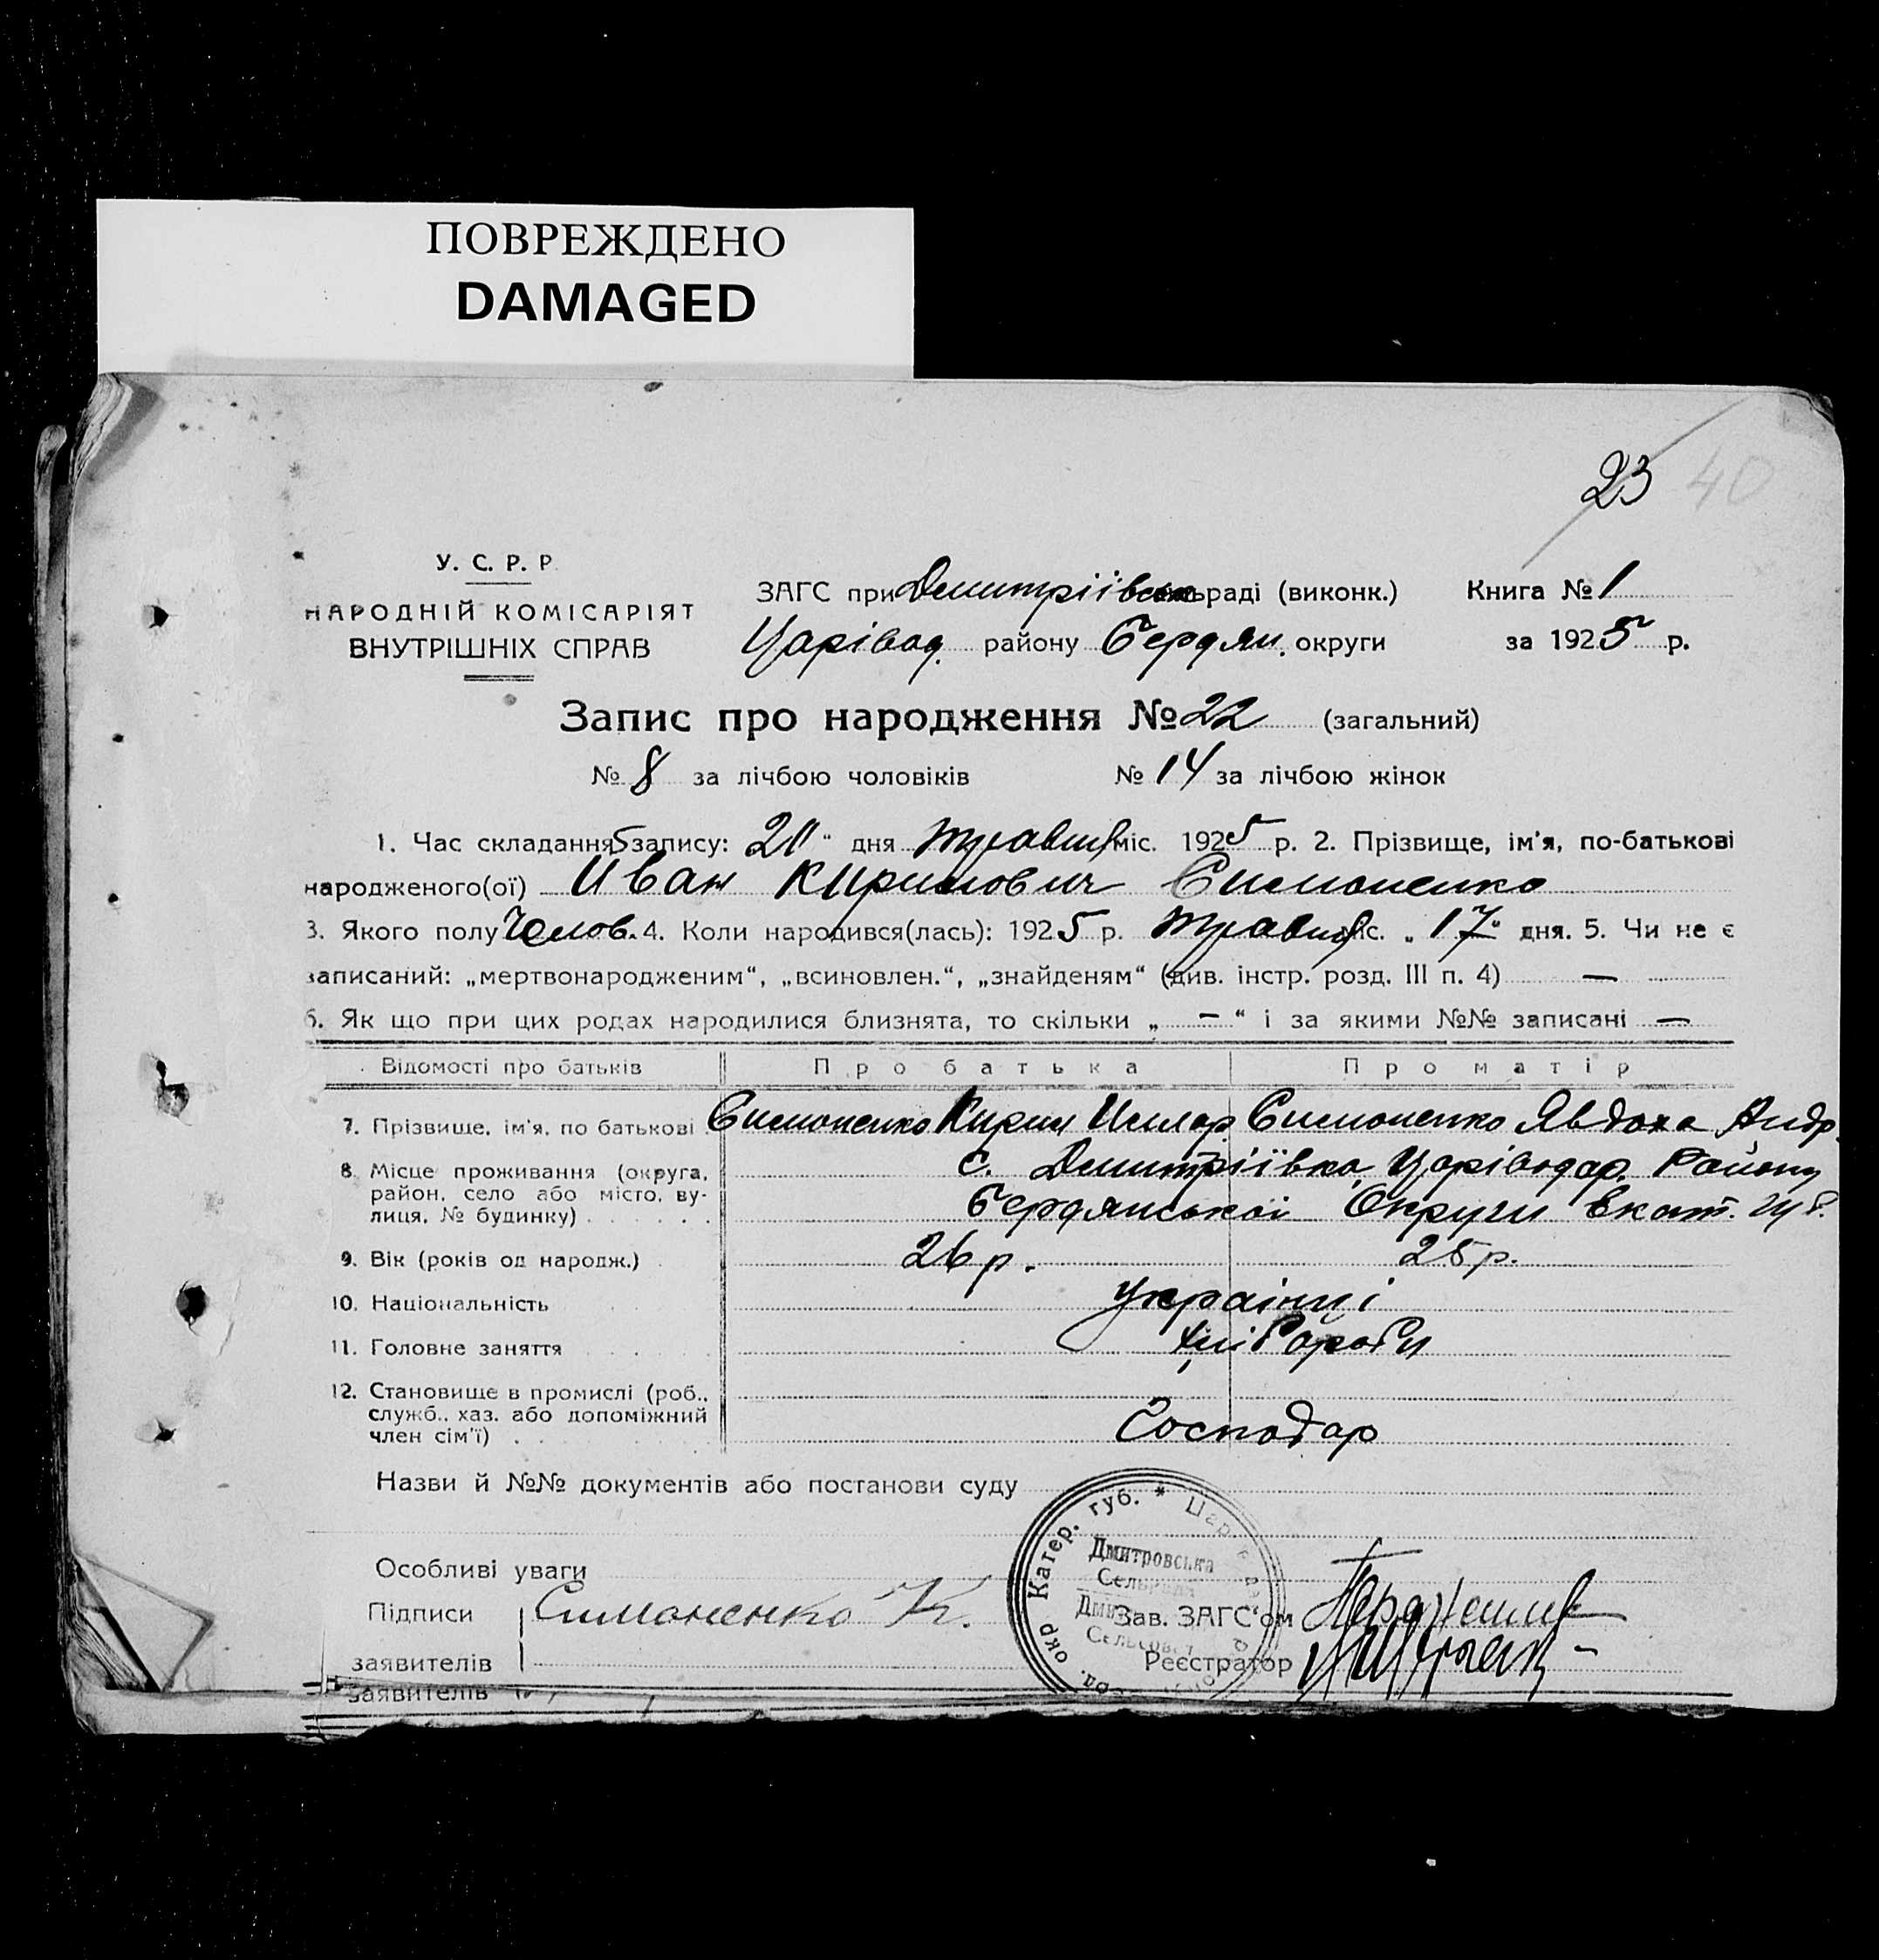 ПОВРЕЖДЕНО
DAMAGED
23 40
У. С. Р. Р
НАРОДНІЙ КОМІСАРІЯТ
ВНУТРІШНІХ СПРАВ
ЗАГС при Дмитріївськ раді (виконк.) Книга № 1
Царівод. району Бердян. округи за 1925 р.
Запис про народження № 22 (загальний)
№ 8 за лічбою чоловіків № 14 за лічбою жінок
1. Час складання запису: 20 " дня травня міс. 1925 р. 2. Прізвище, ім'я, по-батькові
народженого(ої) Иван Кирилович Симоненко
3. Якого полу Чолов. 4. Коли народився(лась): 1925 р. травня міс. „ 17 " дня. 5. Чи не є
записаний: „мертвонародженим“, „всиновлен.“, „знайденям“ (див. інстр. розд. III п. 4) —
6. Як що при цих родах народилися близнята, то скільки „ — “ і за якими №№ записані —
Відомості про батьків Про батька Про матір
7. Прізвище, ім'я, по батькові Симоненко Кирил Симоненко Явдоха Андр.
8. Місце проживання (округа, район, село або місто, вулиця, № будинку) с. Дмитріївка Царіводар. Району
Бердянської Округи Екат. губ.
9. Вік (років од народж.) 26 р. 25 р.
10. Національність Українці
11. Головне заняття хлібороби
12. Становище в промислі (роб., служб., хаз. або допоміжний член сім'ї) Господар
Назви й №№ документів або постанови суду
Особливі уваги
Підписи Симоненко К.
заявителів
Зав. ЗАГС'ом
Реєстратор
окр Катер. губ. *
Дмитровська
Сельрада
Сельсовет
заявителів